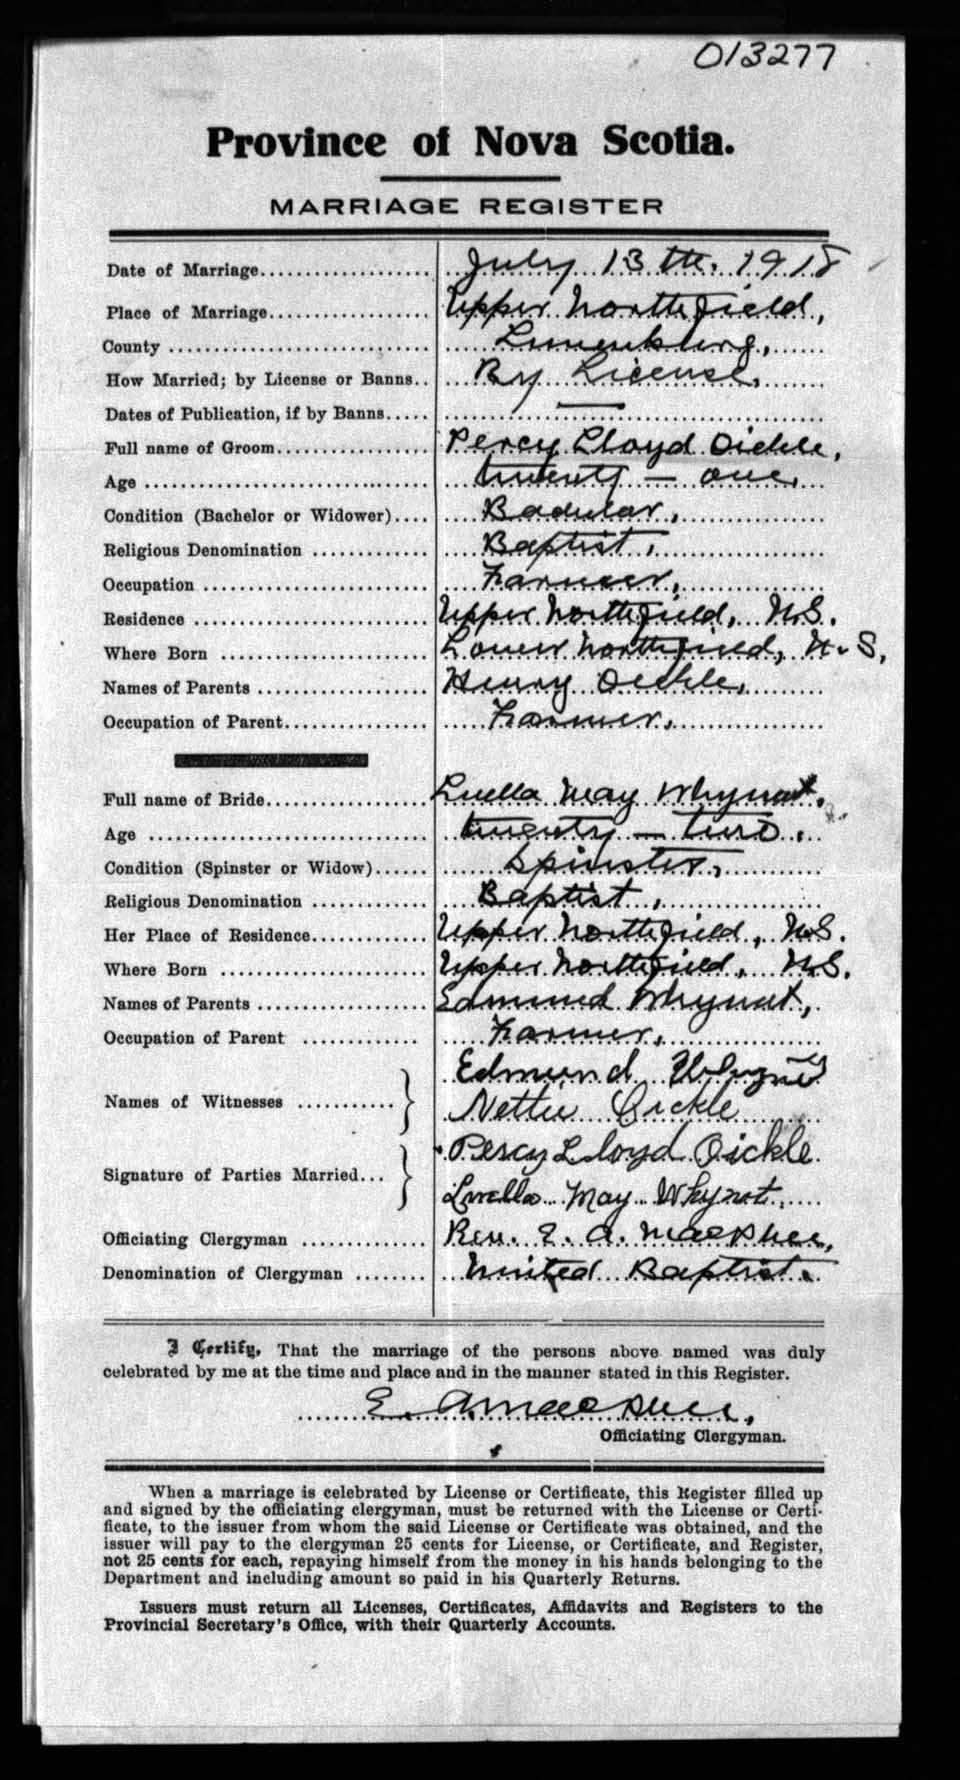 013277
Province of Nova Scotia.
MARRIAGE REGISTER
Date of Marriage................... July 13th. 1918
Place of Marriage.................. Upper Northfield,
County ............................. Lunenburg,
How Married; by License or Banns.. By License,
Dates of Publication, if by Banns..... —
Full name of Groom................. Percy Lloyd Oickle,
Age ................................ twenty — one,
Condition (Bachelor or Widower).... Bachelar,
Religious Denomination ............. Baptist,
Occupation ......................... Farmer,
Residence .......................... Upper Northfield, N.S.
Where Born ........................ Lower Northfield, N.S,
Names of Parents ................... Henry Oickle,
Occupation of Parent................ Farmer,
Full name of Bride.................. Luella May Whynot,
Age ................................ twenty — two,
Condition (Spinster or Widow)...... Spinster,
Religious Denomination ............. Baptist,
Her Place of Residence............. Upper Northfield, N.S.
Where Born ........................ Upper Northfield, N.S.
Names of Parents ................... Edmund Whynot,
Occupation of Parent ............. Farmer,
Edmund
Names of Witnesses ...........
Nettie Oickle
Percy Lloyd Oickle
Signature of Parties Married...
Luella May Whynot
Officiating Clergyman .............. Rev. E. A. MacPhee,
Denomination of Clergyman ........ United Baptist.
I Certify, That the marriage of the persons above named was duly
celebrated by me at the time and place and in the manner stated in this Register.
E. A. MacPhee,
Officiating Clergyman.
When a marriage is celebrated by License or Certificate, this Register filled up
and signed by the officiating clergyman, must be returned with the License or Certi-
ficate, to the issuer from whom the said License or Certificate was obtained, and the
issuer will pay to the clergyman 25 cents for License, or Certificate, and Register,
not 25 cents for each, repaying himself from the money in his hands belonging to the
Department and including amount so paid in his Quarterly Returns.
Issuers must return all Licenses, Certificates, Affidavits and Registers to the
Provincial Secretary's Office, with their Quarterly Accounts.